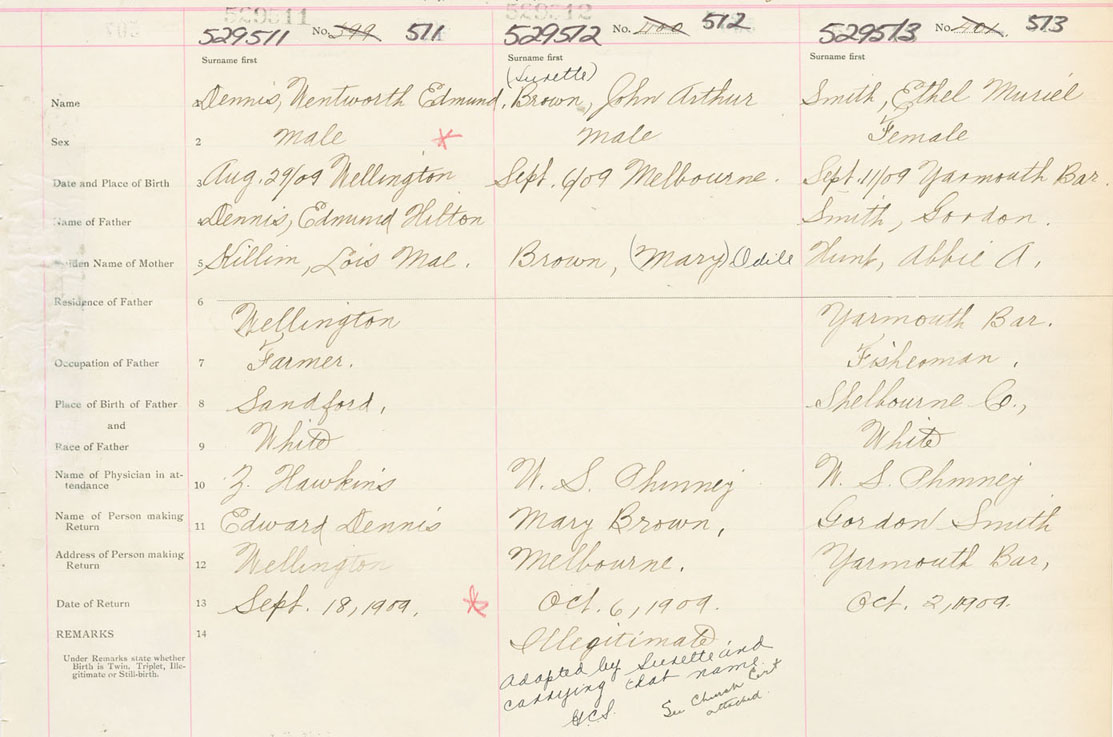 529511 529512
529511 No. 599 511 529512 No. 600 512 529513 No. 601. 513
Surname first Surname first Surname first
(Surette)
Name 1 Dennis, Wentworth Edmund. Brown, John Arthur Smith, Ethel Muriel
Sex 2 Male * Male Female
Date and Place of Birth 3 Aug. 29/09 Wellington Sept. 6/09 Melbourne. Sept. 11/09 Yarmouth Bar.
Name of Father 4 Dennis, Edmund Hilton Smith, Gordon.
Maiden Name of Mother 5 Killim, Lois Mae. Brown, (Mary) Odile Hunt, Abbie A.
Residence of Father 6 Wellington Yarmouth Bar.
Occupation of Father 7 Farmer. Fisherman.
Place of Birth of Father 8 Sandford, Shelbourne Co.,
and
Race of Father 9 White White
Name of Physician in at-
tendance 10 Z. Hawkins W. S. Phinney W. S. Phinney
Name of Person making
Return 11 Edward Dennis Mary Brown, Gordon Smith
Address of Person making
Return 12 Wellington Melbourne. Yarmouth Bar,
Date of Return 13 Sept. 18, 1909. * Oct. 6, 1909. Oct. 2, 1909.
REMARKS 14 Illegitimate
Under Remarks state whether
Birth is Twin, Triplet, Ille-
gitimate or Still-birth.
Adopted by Surette and
carrying that name.
G.C.S. See Church Cert
attached.